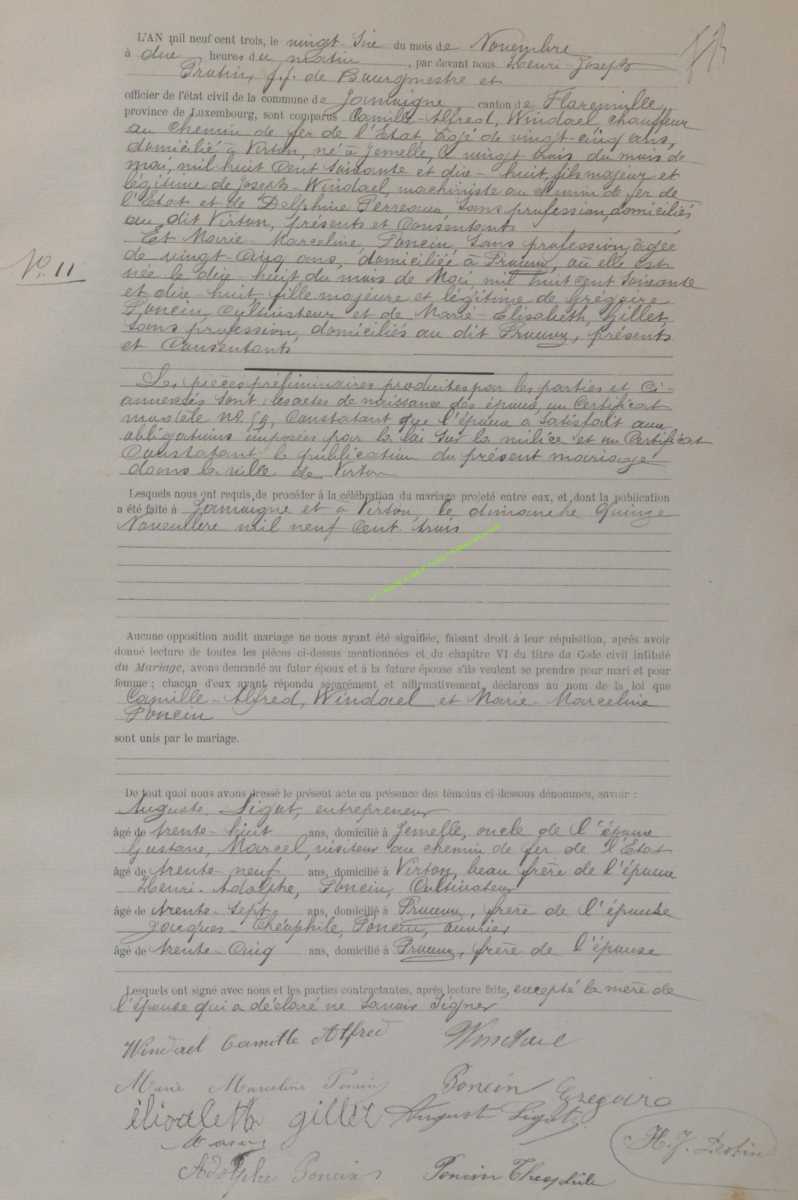 L'AN mil neuf cent trois, le vingt-six du mois de Novembre
à dix heures du matin, par devant nous Henri-Joseph
f.f. de Bourgmestre et
officier de l'état civil de la commune de Jamoigne canton de Florenville,
province de Luxembourg, sont comparus Camille-Alfred, Windael chauffeur
au chemin de fer de l'Etat, âgé de vingt-cinq ans,
domicilié à Virton, né à Jemelle, le vingt trois du mois de
mai, mil huit cent soixante et dix-huit, fils majeur et
légitime de Joseph Windael, machiniste au chemin de fer de
l'Etat et de Delphine sans profession, domiciliés
au dit Virton, présents et consentants
Et Marie-Marceline, Poncin, sans profession, âgée
de vingt-cinq ans, domiciliée à Prouvy, où elle est
N° 11
née le dix-huit du mois de Mai, mil huit cent soixante
et dix-huit fille majeure et légitime de Grégoire
Poncin, cultivateur et de Marie-Elisabeth, Gillet
sans profession, domiciliés au dit Prouvy, présents
et consentants
Les pièces préliminaires produites par les parties et ci-
annexées sont: les actes de naissance des époux, un certificat
modèle N° constatant que l'époux a satisfait aux
obligations imposées par la loi sur la milice et un certificat
constatant la publication du présent mariage
dans la ville de Virton
Lesquels nous ont requis de procéder à la célébration du mariage projeté entre eux, et dont la publication
a été faite à Jamoigne et à Virton, le dimanche quinze
Novembre mil neuf cent trois
Aucune opposition audit mariage ne nous ayant été signifiée, faisant droit à leur réquisition, après avoir
donné lecture de toutes les pièces ci-dessus mentionnées et du chapitre VI du titre du Code civil intitulé
du Mariage, avons demandé au futur époux et à la future épouse s'ils veulent se prendre pour mari et pour
femme ; chacun d'eux ayant répondu séparément et affirmativement, déclarons au nom de la loi que
Camille-Alfred, Windael et Marie-Marceline
Poncin
sont unis par le mariage.
De tout quoi nous avons dressé le présent acte en présence des témoins ci-dessous dénommés, savoir :
Auguste, Ligot, entrepreneur
âgé de trente-huit ans, domicilié à Jemelle, oncle de l'époux
Gustave, Marcel, visiteur au chemin de fer de l'Etat
âgé de trente-neuf ans, domicilié à Virton, beau frère de l'époux
Henri-Adolphe, Poncin, cultivateur
âgé de trente-sept ans, domicilié à Prouvy, frère de l'épouse
Jacques-Théophile, Poncin, ouvrier
âgé de trente-cinq ans, domicilié à Prouvy, frère de l'épouse
Lesquels ont signé avec nous et les parties contractantes, après lecture faite, excepté la mère de
l'époux qui a déclaré ne savoir signer
Windael Camille Alfred Windael
Marie Marceline Poncin Poncin Gregoire
élisabeth gillet August Ligot
Adolphe Poncin Poncin Théophile